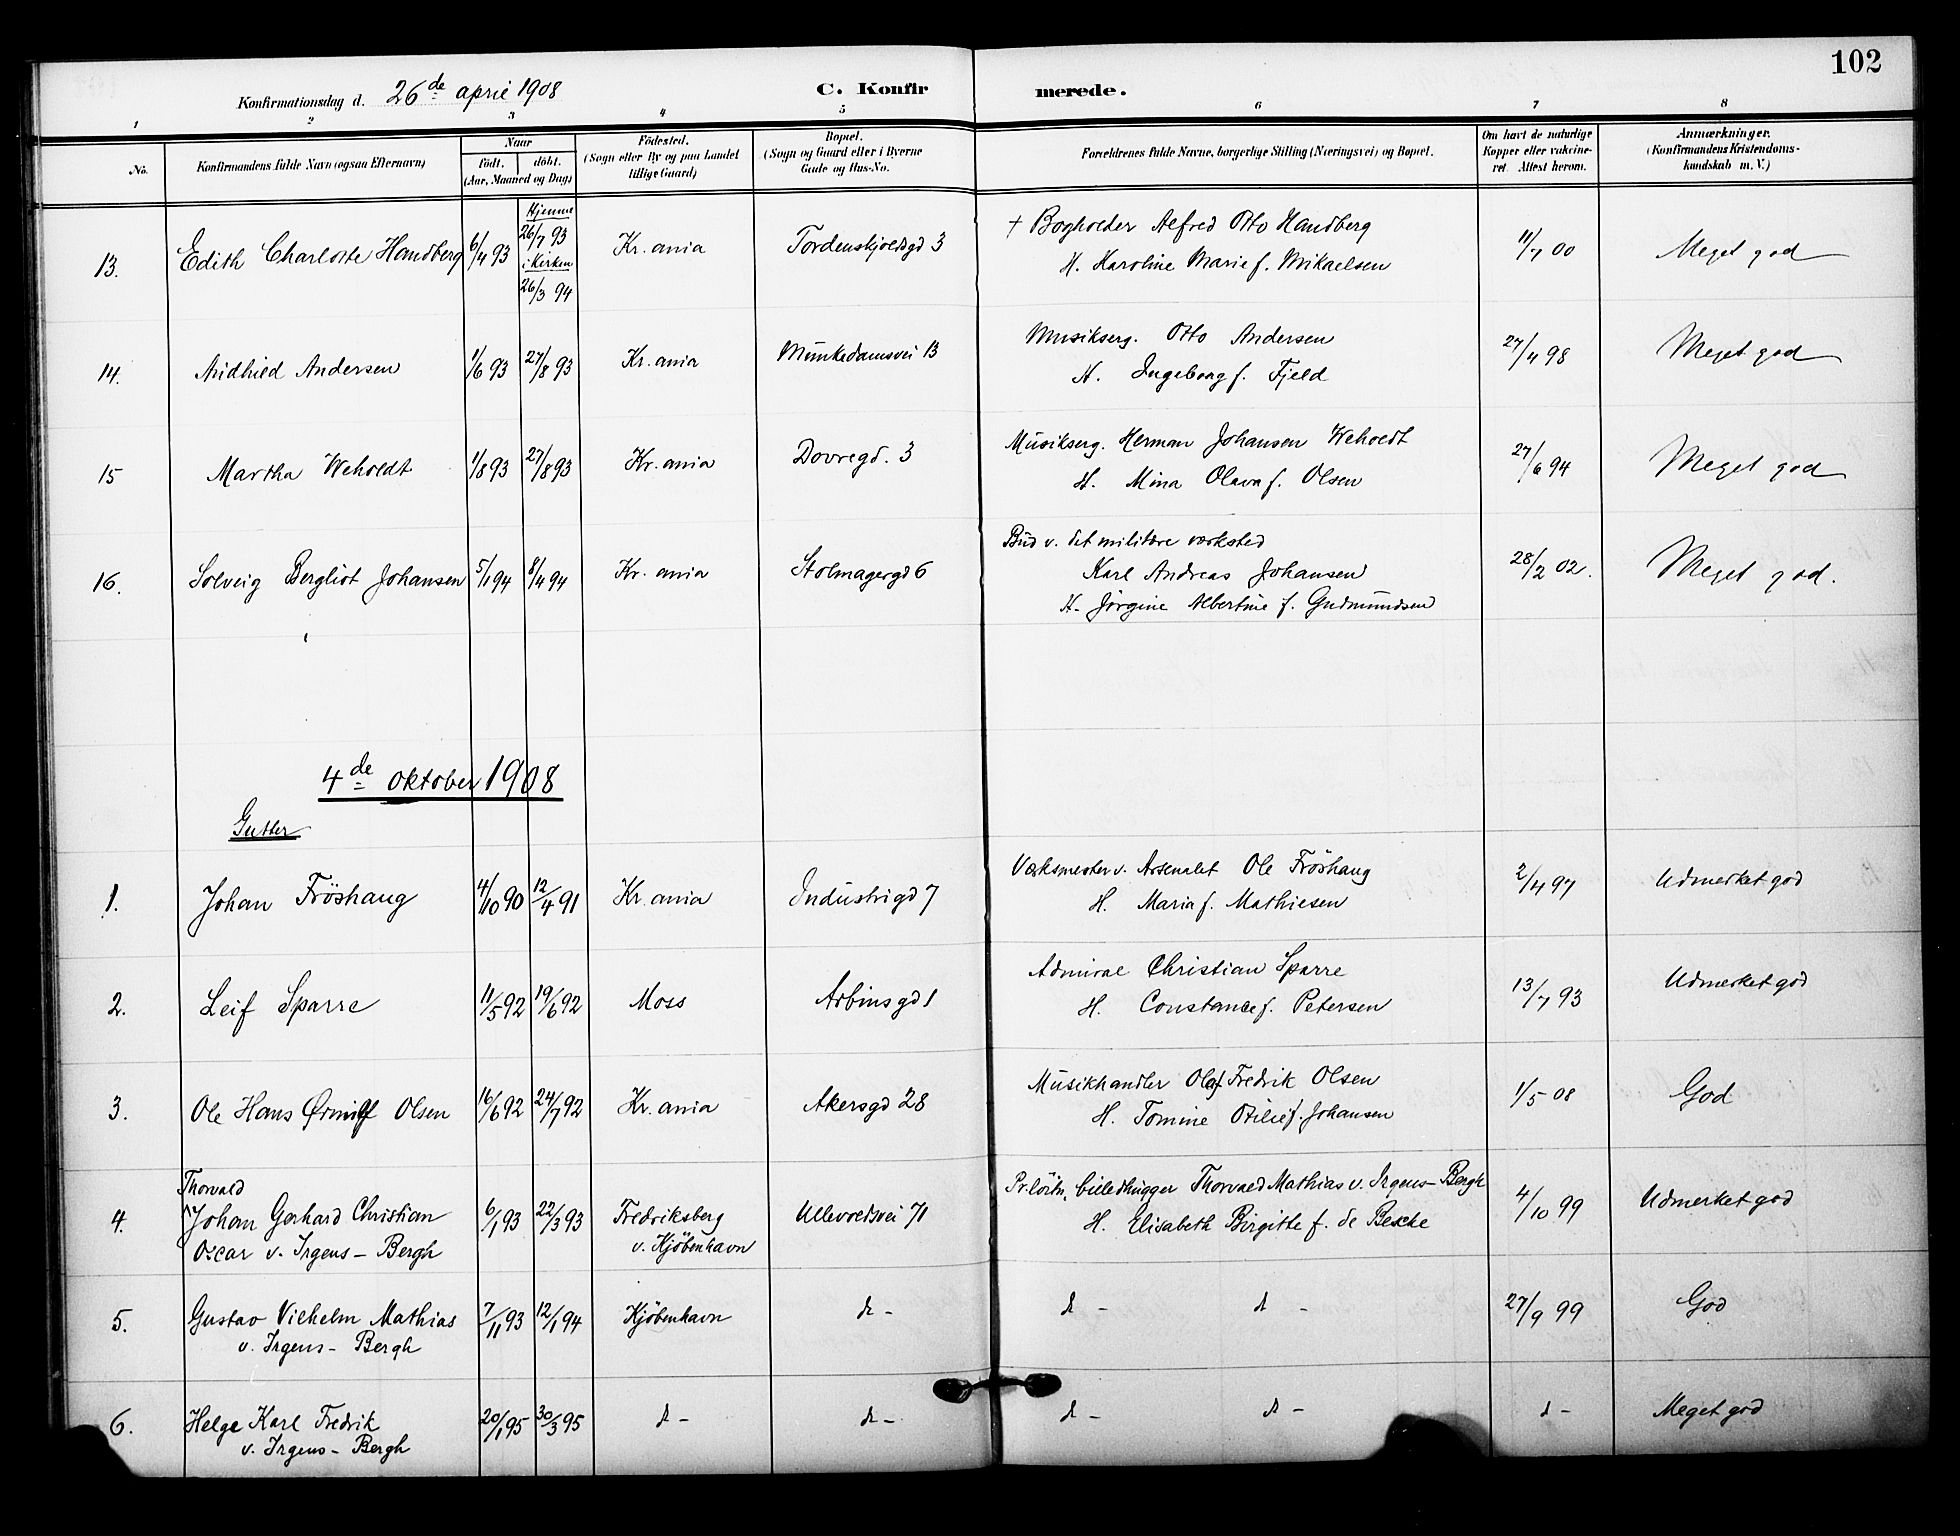 102
Konfirmationsdag d. 26de april 1908 C. Konfirmerede.
1 2 3 4 5 6 7 8
No. Konfirmandens fulde Navn (ogsaa Efternavn) Naar født. døbt. (Aar, Maaned og Dag) Fødested. (Sogn eller By og paa Landet tillige Gaard) Bopæl. (Sogn og Gaard eller i Byerne Gade og Hus-No. Forældrenes fulde Navne, borgerlige Stilling (Næringsvei) og Bopæl. Om havt de naturlige Kopper eller vakcineret. Attest herom. Anmærkninger. (Konfirmandens Kristendomskundskab m. V.)
13. Edith Charlotte Handberg 6/4 93 Hjemme 26/7 93 i Kirken 26/3 94 Kr.ania Tordenskjoldsgd 3 † Bogholder Alfred Otto Handberg
H. Karoline Marie f. Mikaelsen 11/7 00 Meget god
14. Aidhild Andersen 1/6 93 27/8 93 Kr.ania Munkedamsvei 13 Musikserg. Otto Andersen
H. Ingeborg f. Fjeld 27/4 98 Meget god
15 Martha Weholdt 1/8 93 27/8 93 Kr.ania Dovregd. 3 Musikserg. Herman Johansen Weholdt
H. Mina Olava f. Olsen 27/6 94 Meget god
16. Solveig Bergliot Johansen 5/1 94 8/4 94 Kr.ania Stolmagergd 6 Bud v. det militære værksted
Karl Andreas Johansen
H. Jørgine Albertine f. Gudmundsen 28/2 02. Meget god.
4de oktober 1908
Gutter
1. Johan Fröshaug 4/10 90 12/4 91 Kr.ania Industrigd 7 Værksmester v. Arsenalet Ole Fröshaug
H. Maria f. Mathiesen 2/4 97 Udmerket god
2. Leif Sparre 11/5 92 19/6 92 Moss Arbinsgd 1 Admiral Christian Sparre
H. Constance f. Petersen 13/7 93 Udmerket god
3. Ole Hans Ørnulf Olsen 16/6 92 24/7 92 Kr.ania Akersgd 28 Musikhandler Olaf Fredrik Olsen
H. Tomine Otilie f. Johansen 1/5 08 God
4. Thorvald
Johan Gerhard Christian
Oscar v. Irgens-Bergh 6/1 93 22/3 93 Fredriksberg
v. Kjöbenhavn Ullevoldsvei 71 Pr.löitn, billedhugger Thorvald Mathias v. Irgens-Bergh
H. Elisabeth Birgitte f. de Besche 4/10 99 Udmerket god
5. Gustav Vilhelm Mathias
v. Irgens-Bergh 7/11 93 12/1 94 Kjöbenhavn d- d- d- 27/9 99 God
6. Helge Karl Fredrik
v. Irgens-Bergh 20/1 95 30/3 95 d- d- d- d- d- Meget god